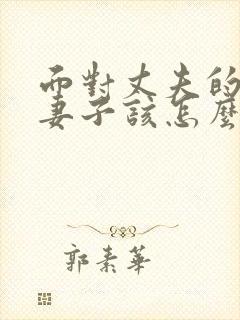 而對丈夫的
妻子該怎麼
郭素華